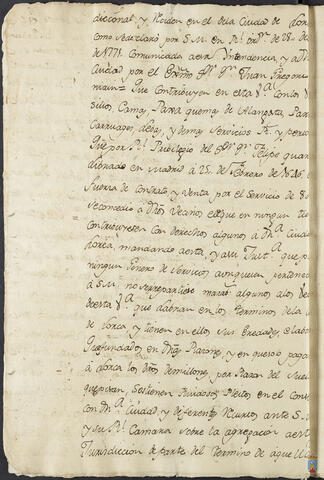 diccional y residen en el dela Ciudad de Lor
como se declaró por S.M. en Rl. orn. de 28. de
de 1771. Comunicada a esta Yntendencia, y a D
Ciudad por el Exmo. Sr. Dn. Juan Gregorio
main= Que Contribuyen en esta Va. con los
silios, Camas, Paxa quema de Alangosta, Para
Carruages, Leba, y demas Servicios Rs. y perso
Que por Rl. Privilegio del Sr. Rey Dn. Felipe quar
dionado en Madrid a 25. de Febrero de 1626.
fuerza de Contrato y Venta por el Servicio de
se concedio a Dhos Vecinos, el que en ningun tie
contribuyesen con derechos algunos a Dha. Ciuda
Lorca, mandando a esta, y a su Justa. que p
ningun Genero de Servicio, aunque pertenec
a S.M. no se repartiese mrs. alguno a los
de esta Va. que labran en los terminos de la
de Lorca, y tienen en ellos sus Eredades, o labo
Y refundados, en Dhas. Razones, y en que solo paga
a Lorca los dros. de millones por Razon del Suel
que pisan, Sostienen Ruidosos Pleitos, en el Cons
con Dha. Ciudad, y diferentes Recursos ante S.
y su Rl. Camara sobre la agregacion a esta
Jurisdiccion de parte del termino de aquella